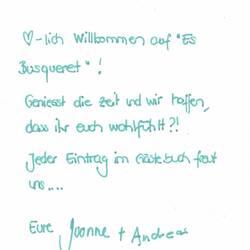 ♡-lich Willkommen auf "Es
Busqueret" !
Geniesst die Zeit und wir hoffen,
dass ihr euch wohlfühlt?!
Jeder Eintrag im Gästebuch freut
uns....
Eure Joanne + Andreas